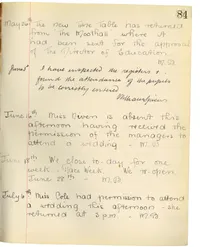 84
May 24th The new Time Table has returned
from the Montblas where it
had been sent for the approval
of the Director of Education.
M.D.
June 1st I have inspected the registers &
found the attendance of the pupils
to be correctly entered
June 6th Miss Owen is absent this
afternoon having received the
permission of the managers to
attend a wedding. - M.D.
June We close to-day for one
week. We re-open
June M.D.
July 6th Miss Cole had permission to attend
a wedding this afternoon - she
returned at 3 p.m. - M.D.